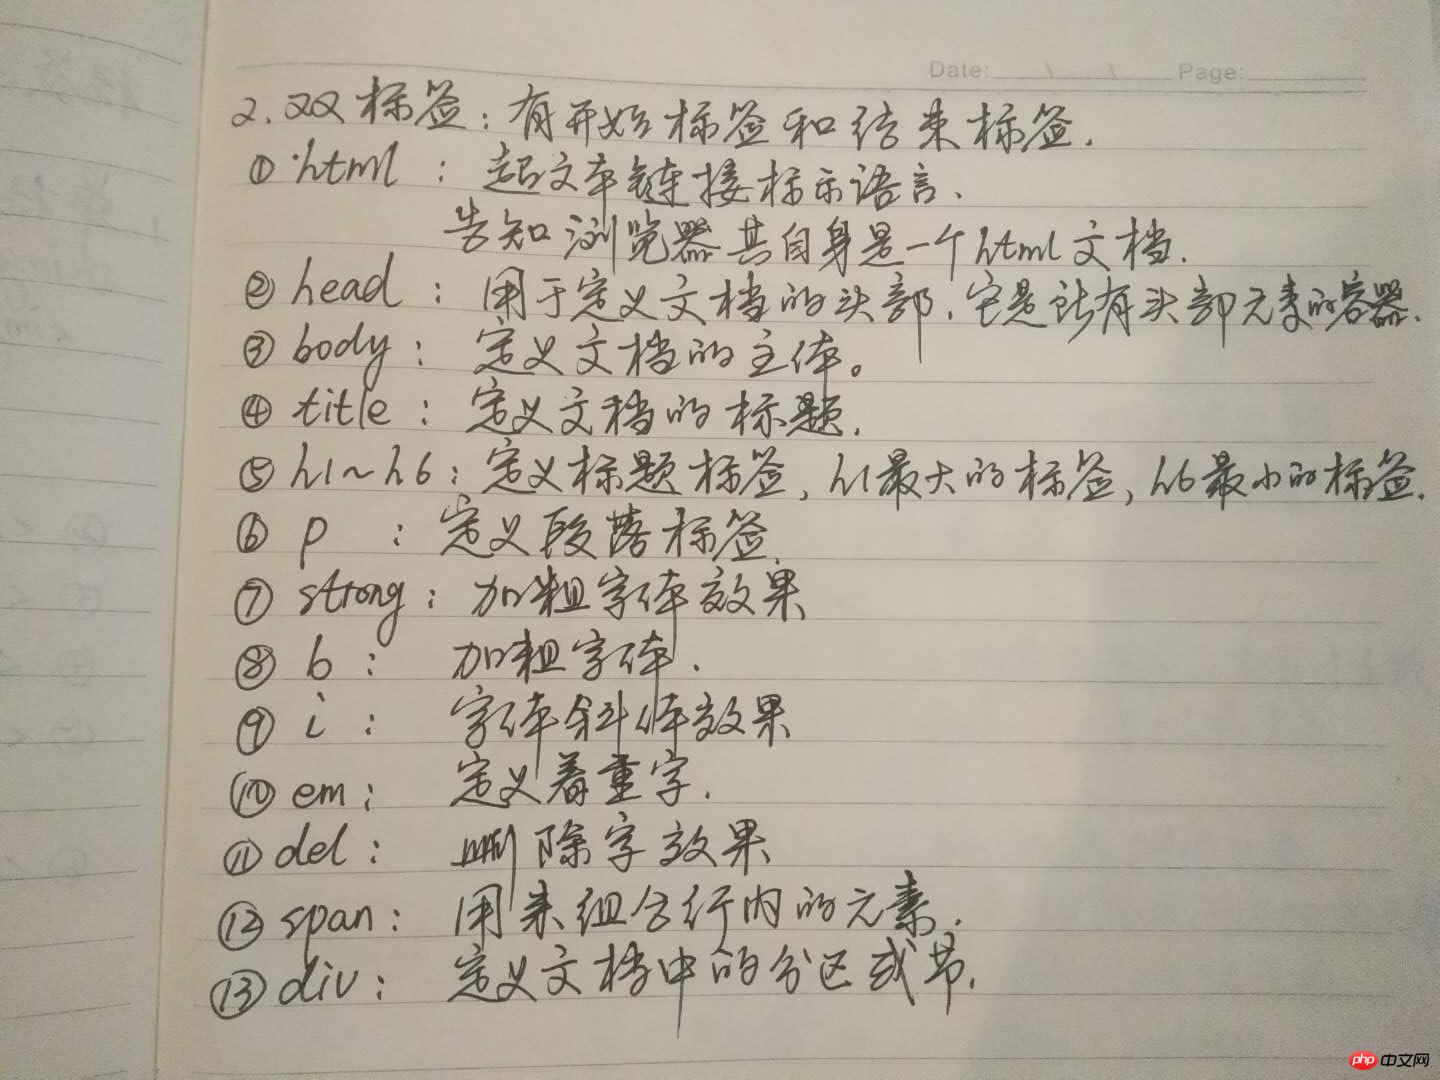 Date: \ \ Page:
2. 双标签: 有开始标签和结束标签.
① html : 起文本链接标示语言.
告知浏览器其自身是一个html文档.
② head : 用于定义文档的头部. 它是所有头部元素的容器.
③ body : 定义文档的主体。
④ title : 定义文档的标题.
⑤ h1~h6 : 定义标题标签, h1最大的标签, h6最小的标签.
⑥ p : 定义段落标签.
⑦ strong : 加粗字体效果
⑧ b : 加粗字体.
⑨ i : 字体斜体效果
⑩ em : 定义着重字.
⑪ del : 删除字效果
⑫ span : 用来组合行内的元素.
⑬ div : 定义文档中的分区或节.
php 中文网